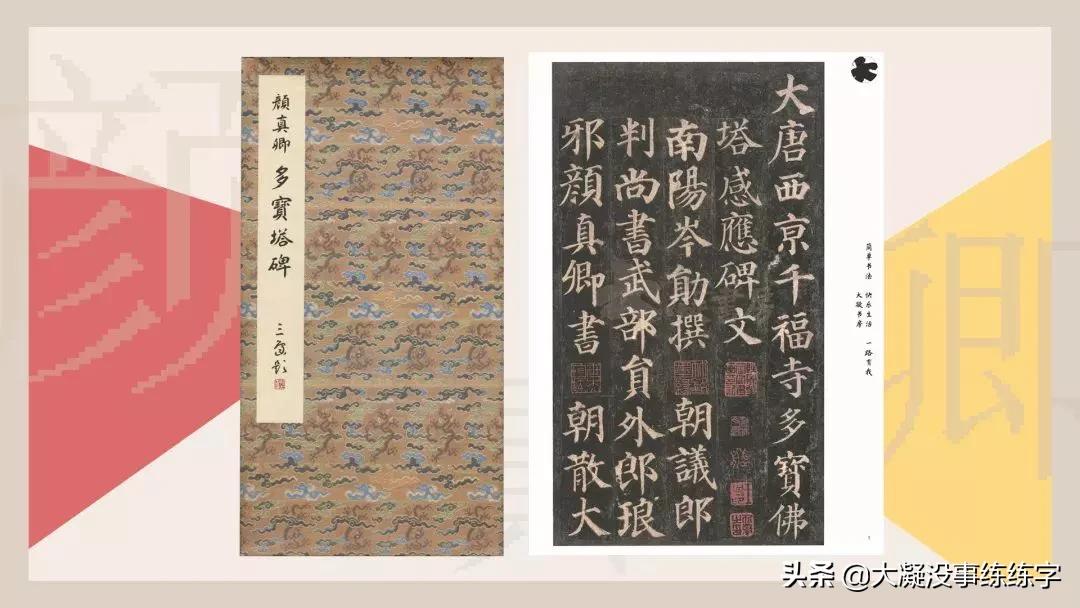 顏真卿 多寶塔碑
大唐西京千福寺多寶佛
塔感應碑文
南陽岑勛撰 朝議郎
判尚書武部員外郎琅
邪顏真卿書 朝散大
简单书法 快乐生活 一路有我
大凝书房
头条 @大凝没事练练字